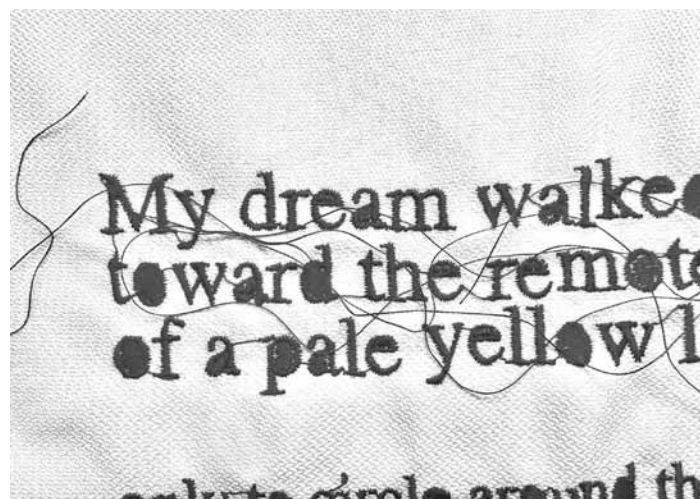 My dream walked
toward the remote
of a pale yellow l
only to circle around th